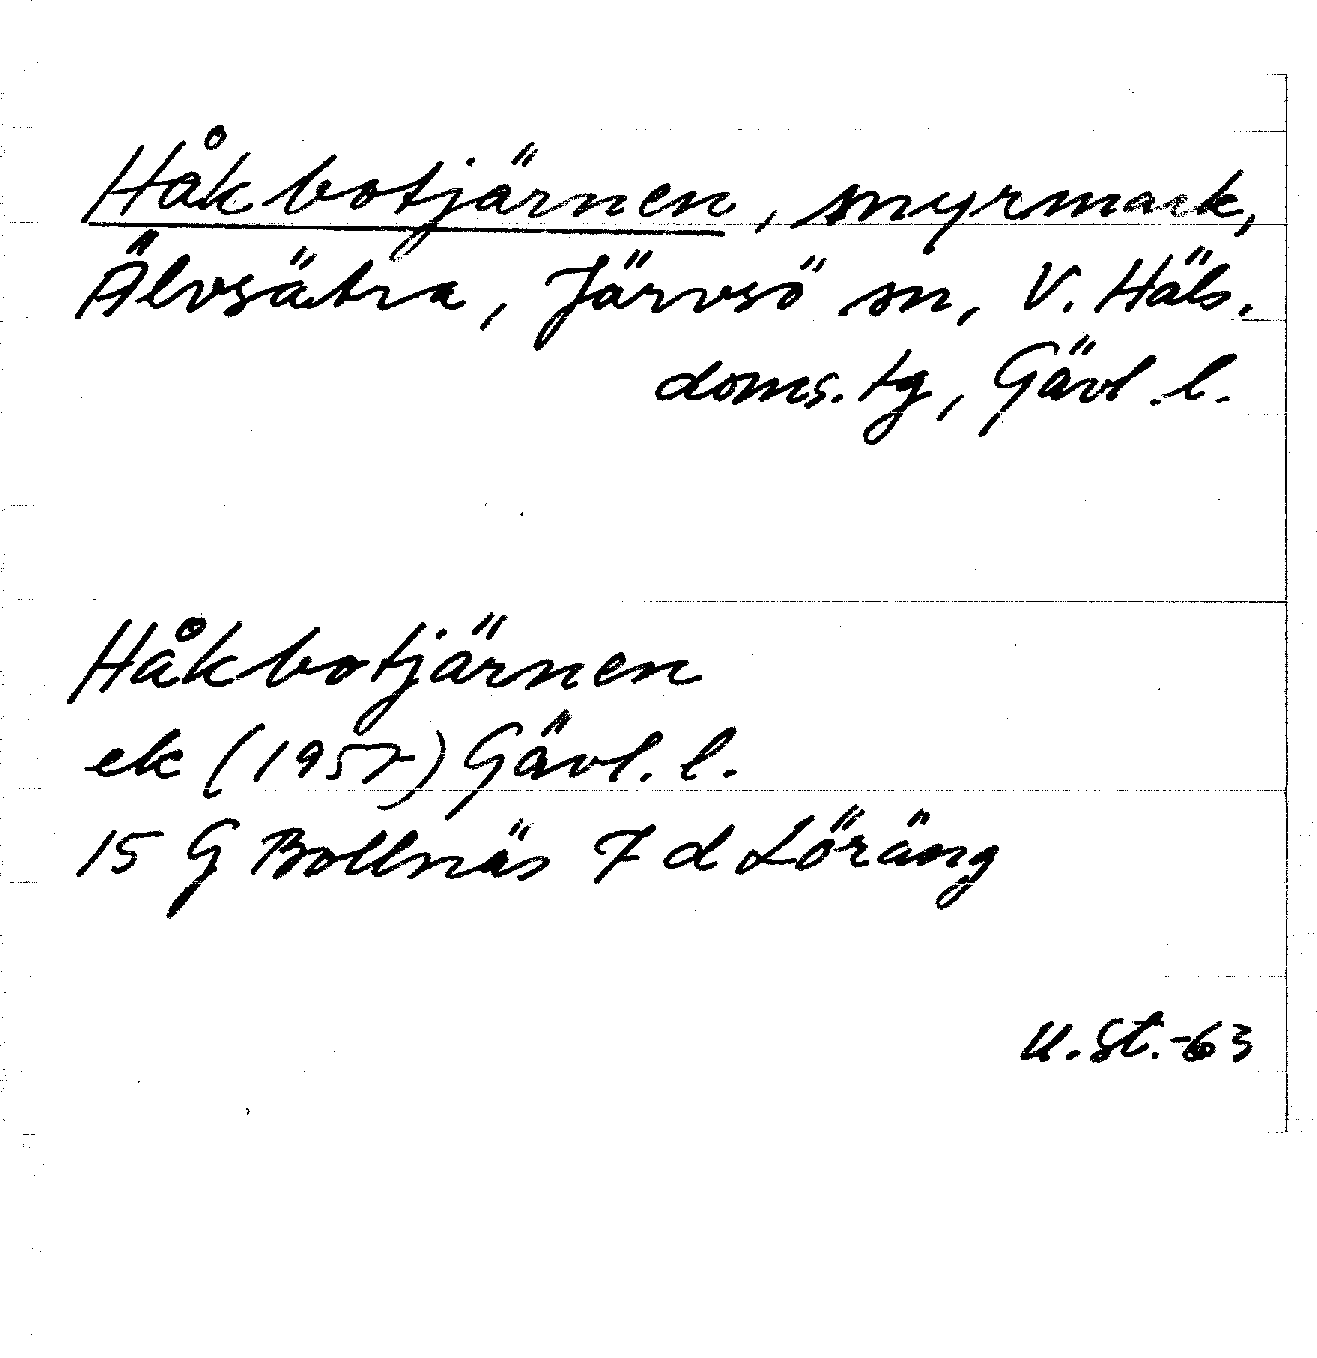 Håkbotjärnen, myrmark,
Älvsätra, Järvsö sn, V. Häls.
doms. tg, Gävl. l.
Håkbotjärnen
ek (1957) Gävl. l.
15 G Bollnäs 7 d Löräng
U.St.-63